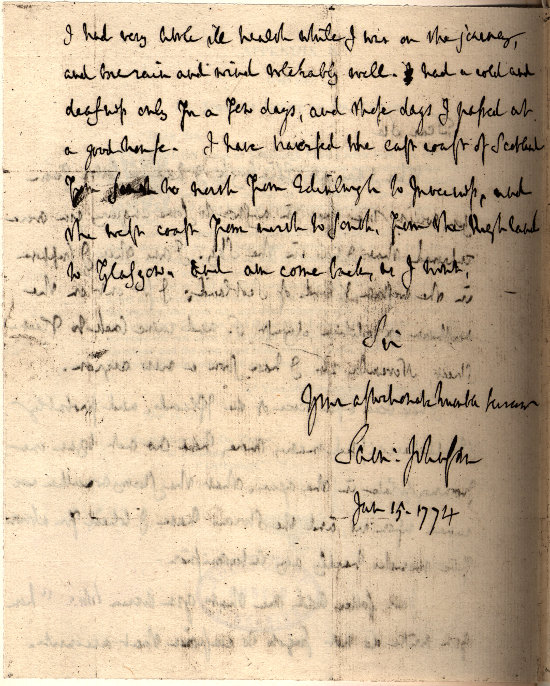 I had very little ill health while I was on the journey,
and bore rain and wind tolerably well. I had a cold and
deafness only for a few days, and those days I passed at
a good house. I have traversed the east coast of Scotland
from South to north from Edinburgh to Inverness, and
the west coast from north to South, from the Highlands
to Glasgow. And am come back, as I went,
Sir
Your affectionate humble servant
Sam: Johnson
Jan 15. 1774